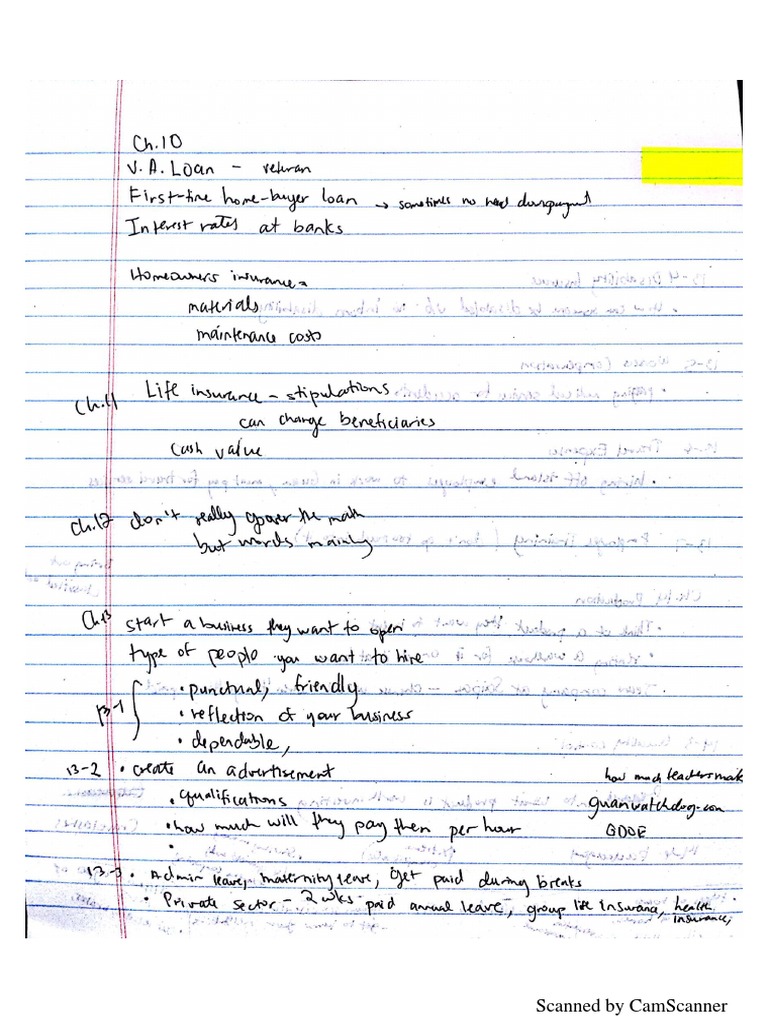 Ch.10
V.A. Loan - veteran
First-time home-buyer loan → sometimes no need downpayment
Interest rates at banks
Homeowners insurance =
materials
maintenance costs
Ch.11 Life insurance - stipulations
can change beneficiaries
Cash value
Ch.12 don't really cover the math
but words mainly
Ch13 start a business they want to open
type of people you want to hire
13-1 • punctual, friendly
• reflection of your business
• dependable,
13-2 • create an advertisement
how much teachers make
• qualifications
guamwatchdog.com
• how much will they pay them per hour
GDOE
•
13-3 • Admin leave, maternity leave, get paid during breaks
• Private sector - 2 wks paid annual leave, group life insurance, health insurance,
Scanned by CamScanner